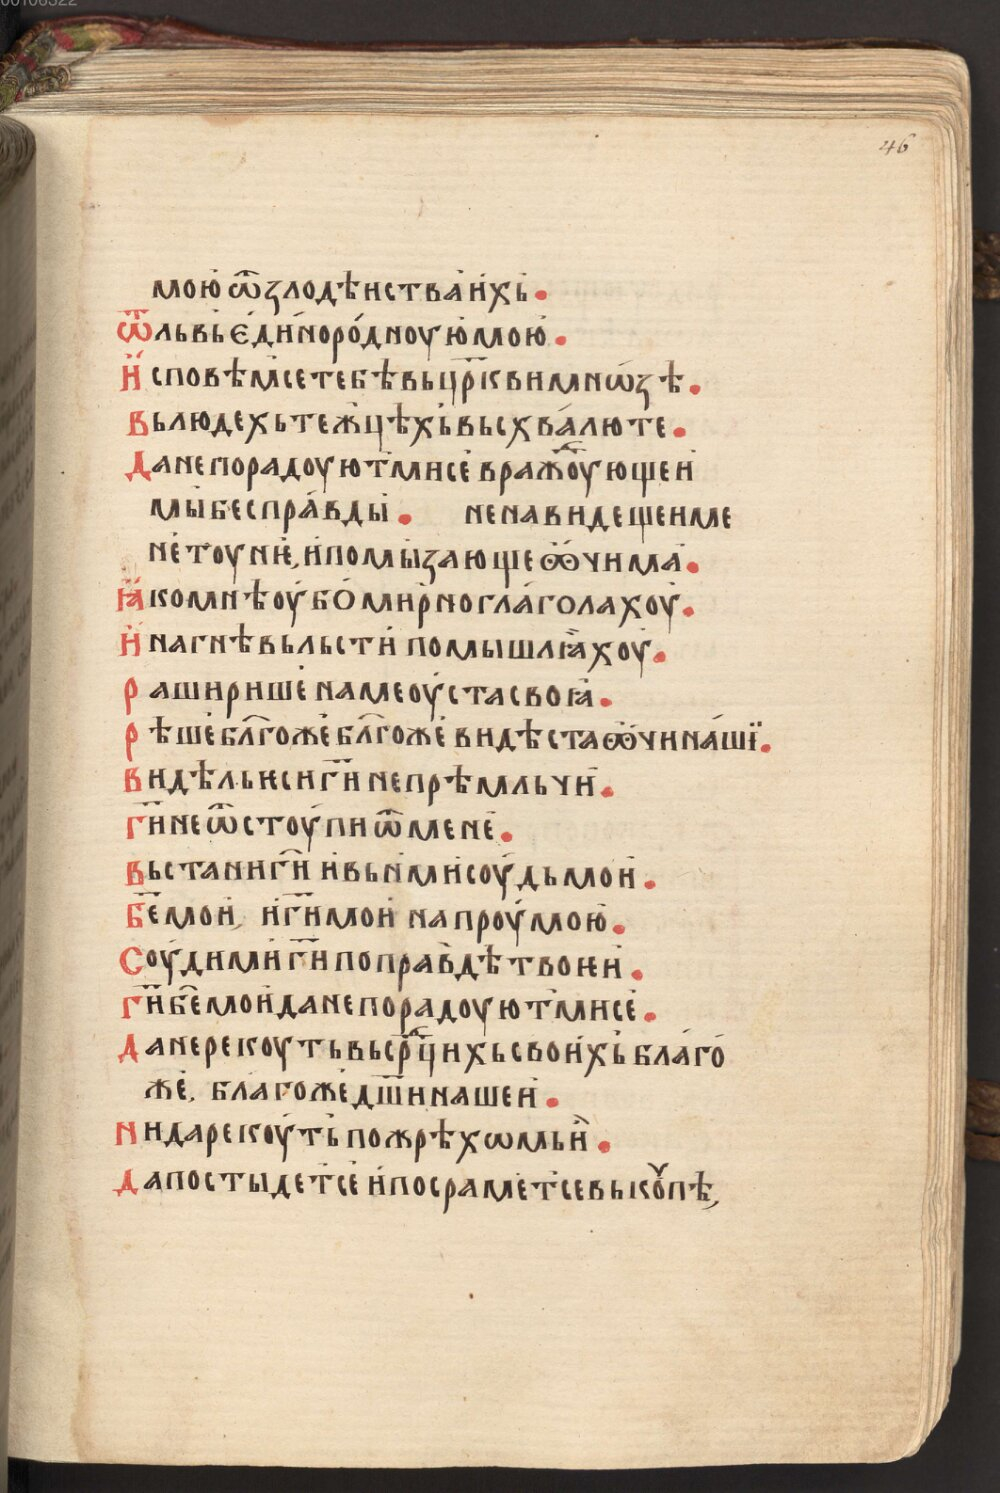 00106322
46
мою ѿ злодѣиства ихь.
Ѿ львь единородноую мою.
Исповѣмсе тебѣ вь цр҃кви мнѡзѣ.
Вь людехь тежцѣхь высхвалю те.
Да не порадоуютмисе враждоующеи
мы бес правды. ненавидещеи ме
не тоуниѥ, и помызающе ꙍчима.
Ꙗко мнѣ оубо мирно глаголахоу.
И на гнѣвь льсти помышлꙗхоу.
Раширише на ме оуста своꙗ.
Рѣше бл҃гоже бл҃гоже видѣста ꙍчи наши.
Видѣль ѥси г҃и не прѣмльчи.
Г҃и не ѿстоупи ѿ мене.
Вьстани г҃и и вьнми соудь мои.
Б҃е мои, и г҃и мои на проу мою.
Соуди ми г҃и по правдѣ твоѥи.
Г҃и б҃е мои да не порадоуютмисе.
Да не рекоуть вь срⷣцихь своихь благо
же, благоже дш҃и нашеи.
Ни да рекоуть пожрѣхѡмь и.
Да постыдетсе и посраметсе выкоупѣ,